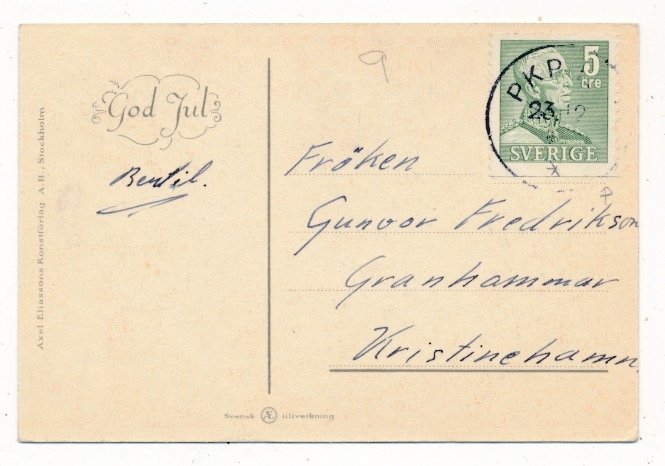 9
5
öre
SVERIGE
PKP
23
12
God Jul
Bertil.
Fröken
Gunvor Fredrikson
Granhammar
Kristinehamn.
Axel Eliassons Konstförlag A. B., Stockholm
Svensk Æ tillverkning